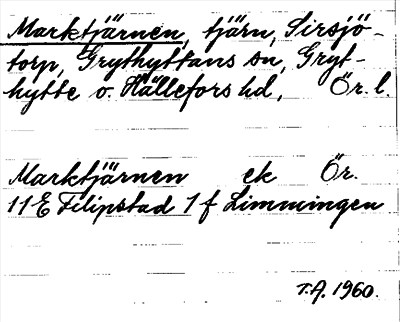 Marktjärnen, tjärn, Sirsjö-
torp, Grythyttans sn, Gryt-
hytte o. Hällefors hd, Ör. l.
Marktjärnen ek Ör.
11 E Filipstad 1 f Limmingen
T.A. 1960.